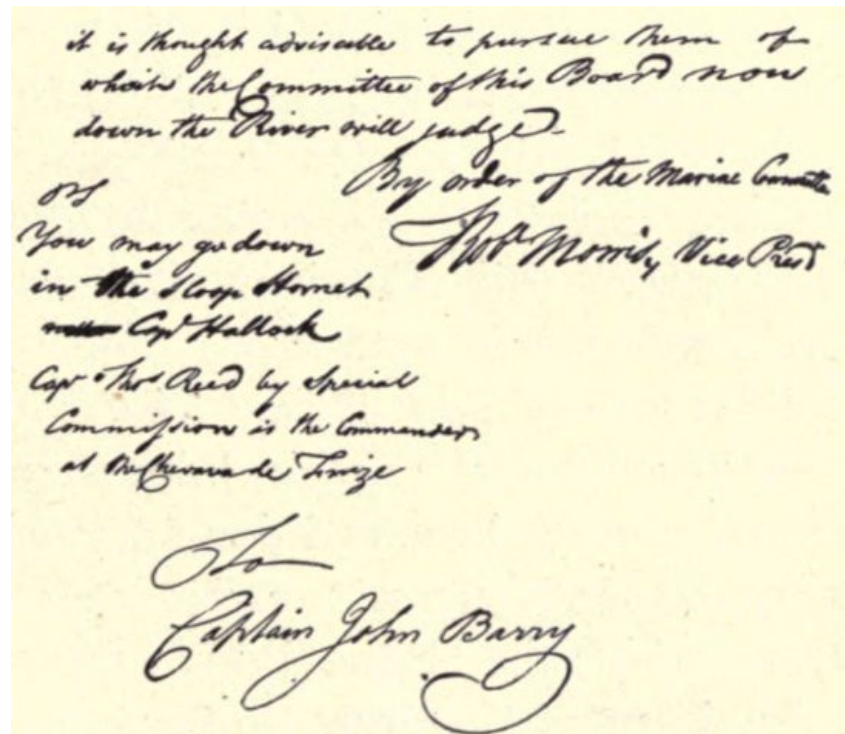 it is thought adviseable to pursue them of
which the Committee of this Board now
down the River will judge.
By order of the Marine Committee
PS
You may go down
in the Sloop Hornet
Capt Hallock
Robt Morris, Vice Presdt
Capt Thos Read by Special
Commission is the Commander
at the Chevaux de Frize
To
Captain John Barry